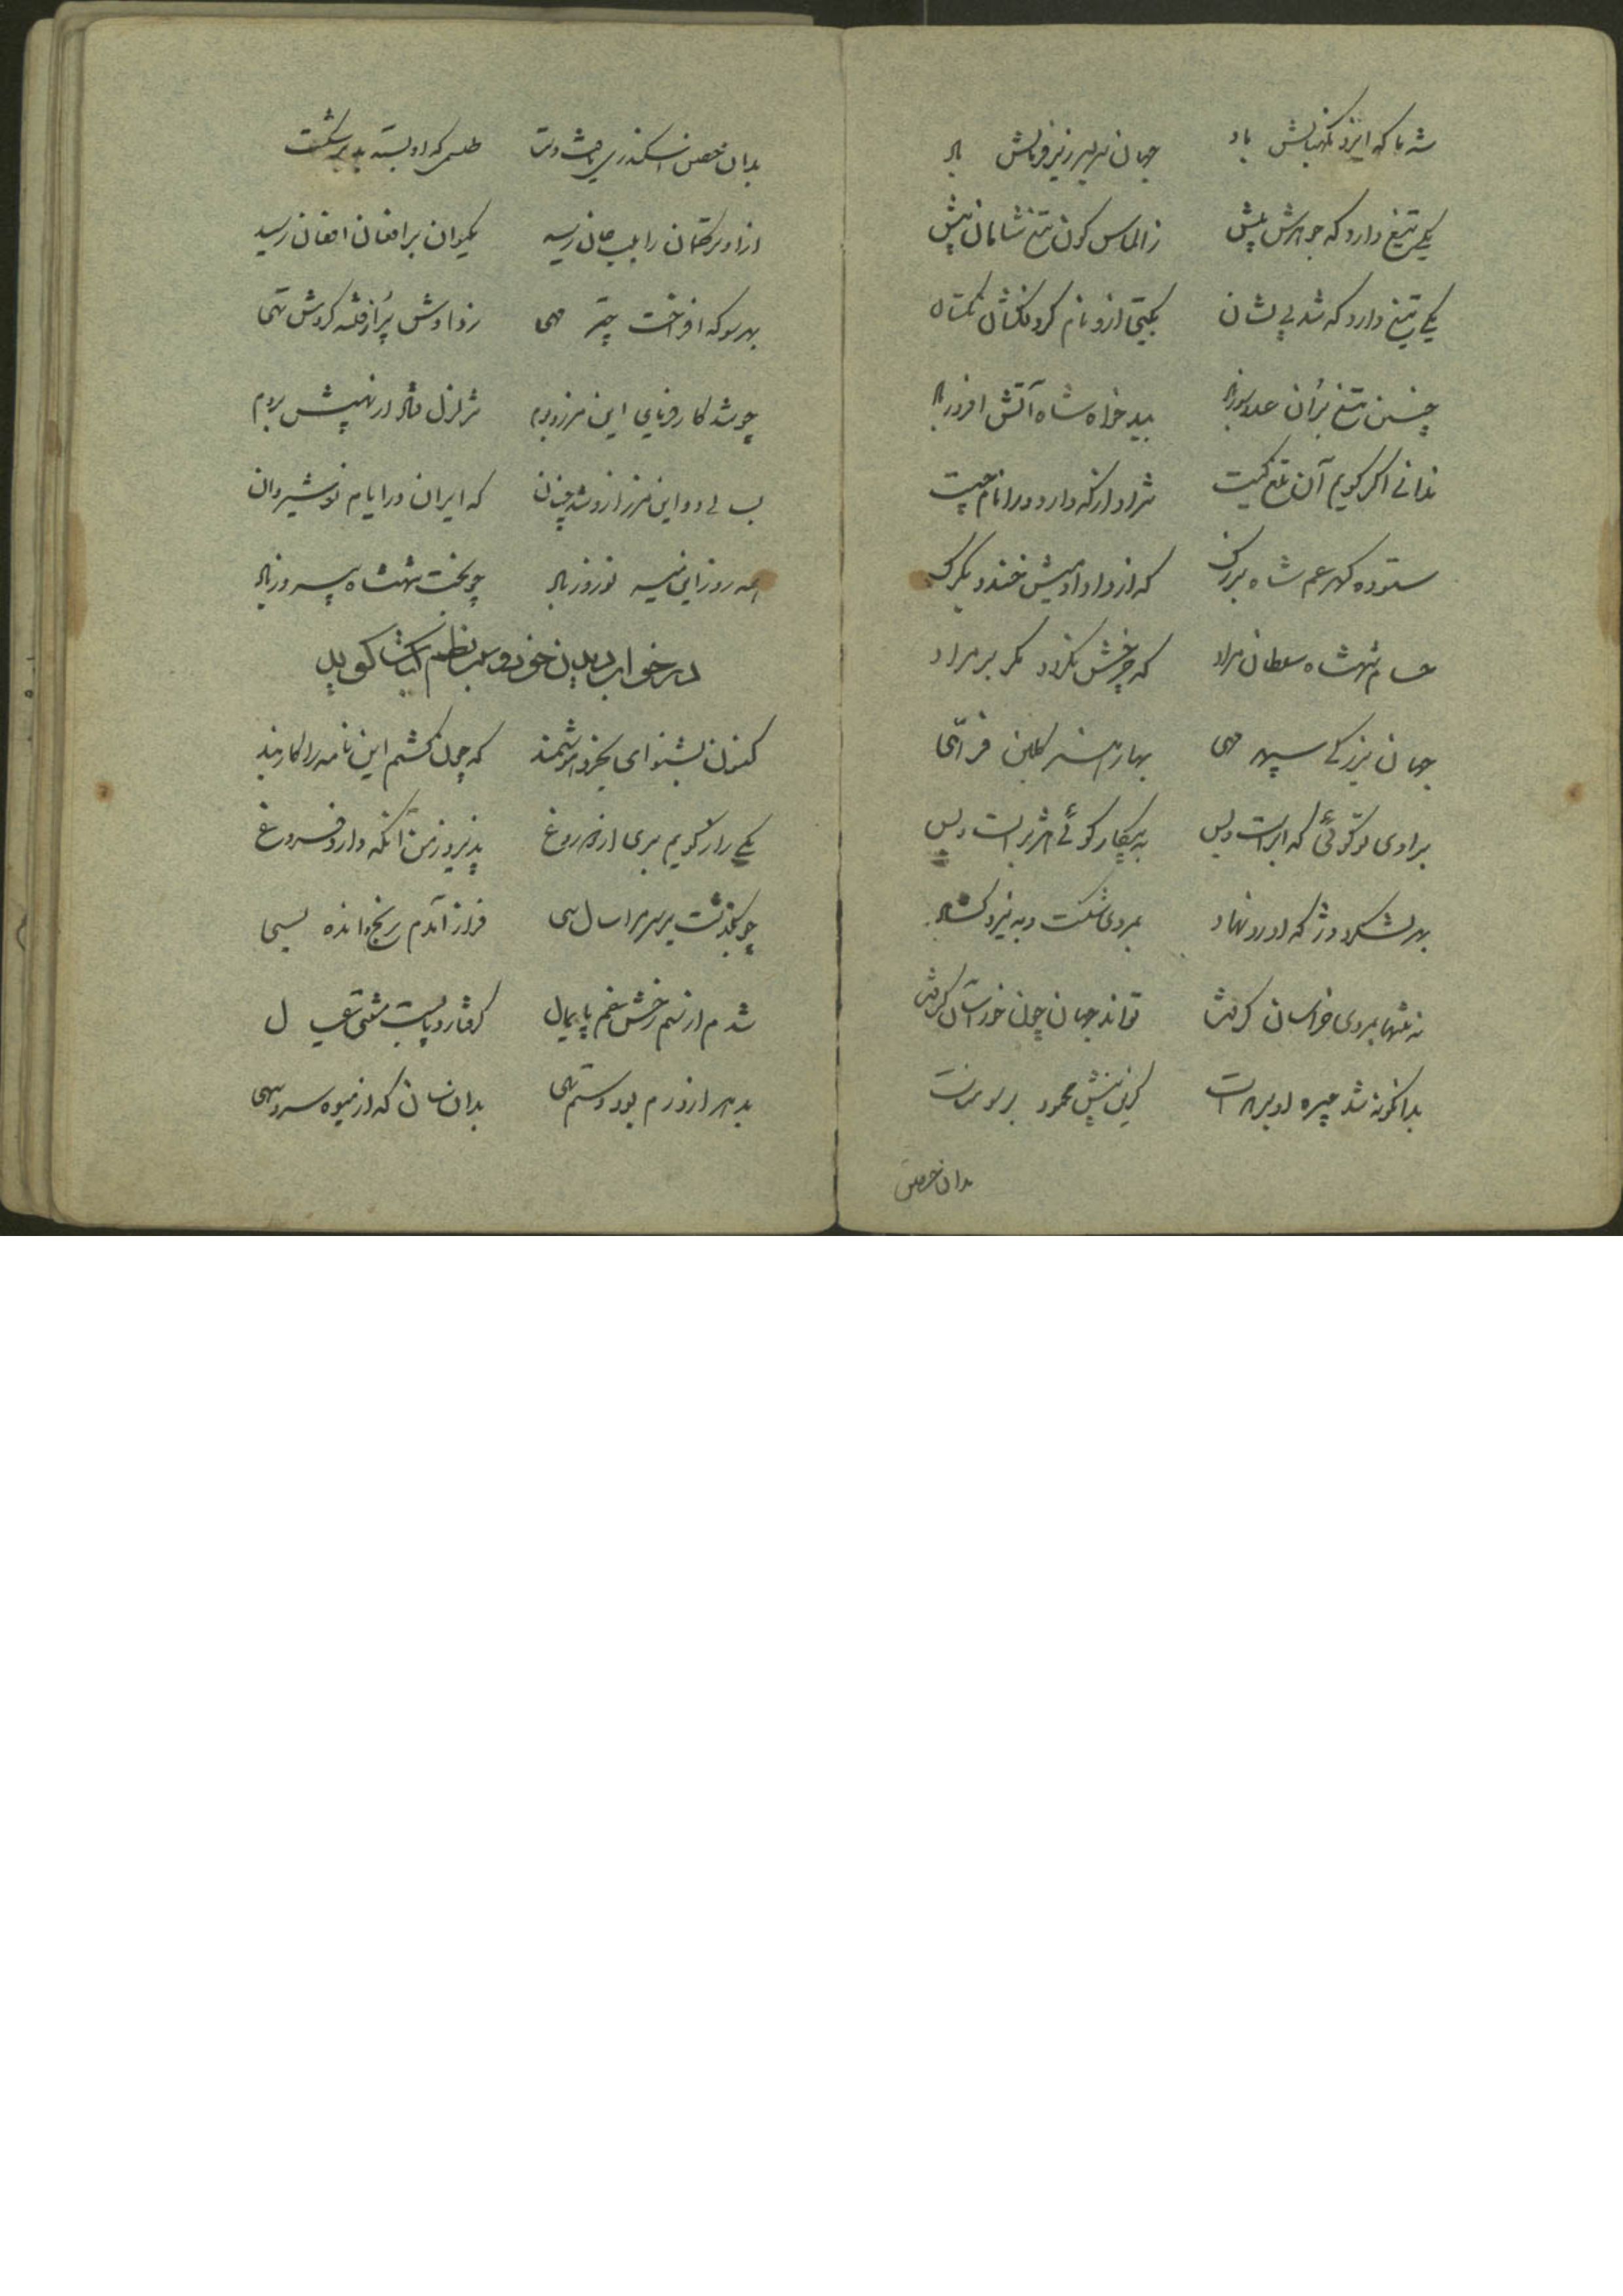 شه ما که ایزد نگهبانش باد جهان سربسر زیر فرمانش باد
یکی تیغ دارد که جوهرش پیش ز الماس کون تیغ شاهان پیش
یکی تیغ دارد که شد بی نشان بگیتی ازو نام گردنکشان
چنین تیغ بران عدو سوز باد ببدخواه شاه آتش افروز باد
ندانی اگر گویم آن تیغ کیست نژاد از که دارد ورا نام چیست
ستوده گهر عم شاه بزرگ که از داد او میش خندد بگرگ
حسام شهنشاه سلطان مراد که چرخش نگردد مگر بر مراد
جهان بزرگی سپهر مهی بهار هنر گلبن فرهی
برادی تو گوئی که ابر است و بس به پیکار گوئی هژبر است و بس
بهر لشکر و دژ که او رو نهاد بمردی شکست و به نیرو گشاد
نه تنها بمردی خراسان گرفت تواند جهان چون خور آسان گرفت
بدانگونه شد چیره او بر هرات کزین پیش محمود بر سومنات
بدان حصن
بدان حصن اسکندری یافت دست طلسمی که او بسته بد برشکست
از او ترکمان را بلب جان رسید بکیوان بر افغان افغان رسید
بهر سو که افراخت چتر مهی ز دادش پر از فتنه کردش تهی
چو شد کار فرمای این مرز و بوم تزلزل فتاد از نهیبش بروم
که ایران در ایام نوشیروان
همه روز این نوروز باد چو بخت شهنشاه پیروز باد
در خواب دیدن خود و سبب نظم کتاب گوید
کنون بشنو ای بخرد هوشمند که چون گشتم این نامه را کاربند
یکی راز گویم بری از دروغ پذیرد ز من آنکه دارد فروغ
چو بگذشت بر سر مرا سال سی فراز آمدم رنج و انده بسی
شدم از سم رخش غم پایمال گرفتار و پابست مشتی عیال
بد هر از درم بود دستم تهی بدان سان که از میوه سرو سهی